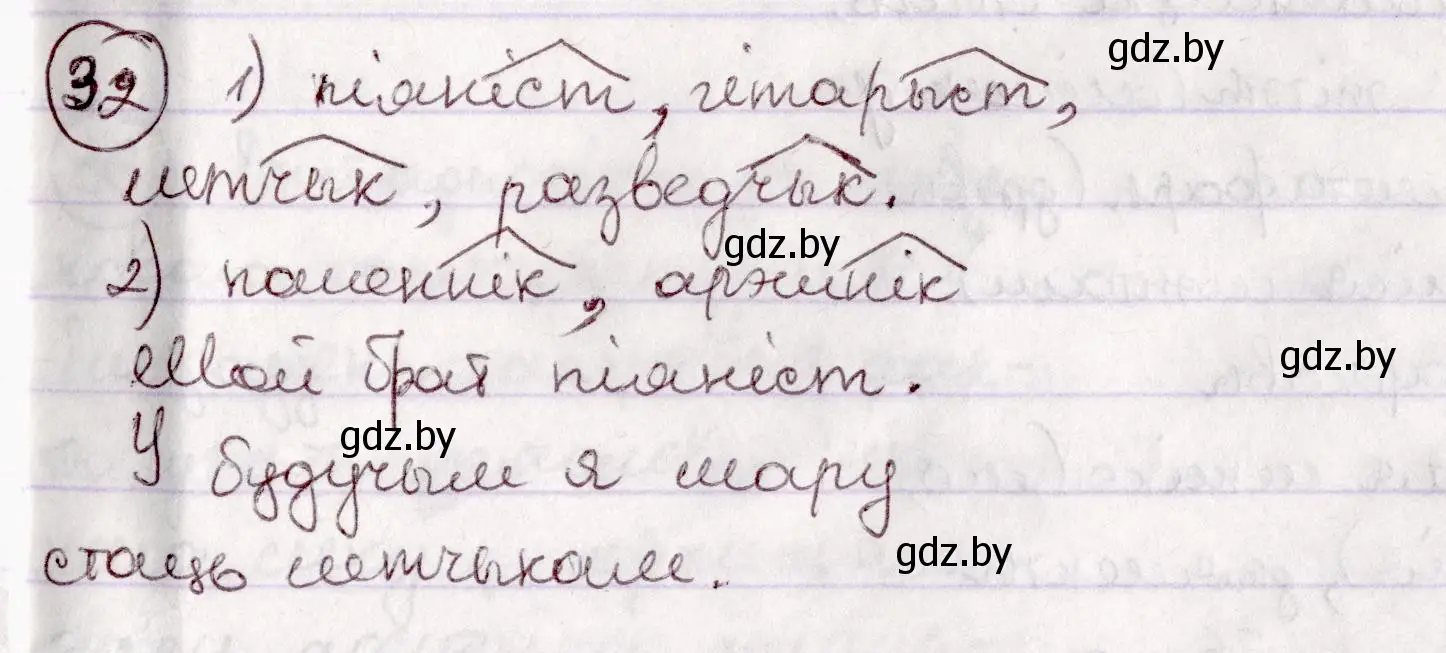 32 1) піяніст, гітарыст,
лётчык, разведчык.
2) каменнік, аржэнік
Мой брат піяніст.
У будучым я мару
стаць лётчыкам.
gdz.by
gdz.by
gdz.by
gdz.by
gdz.by